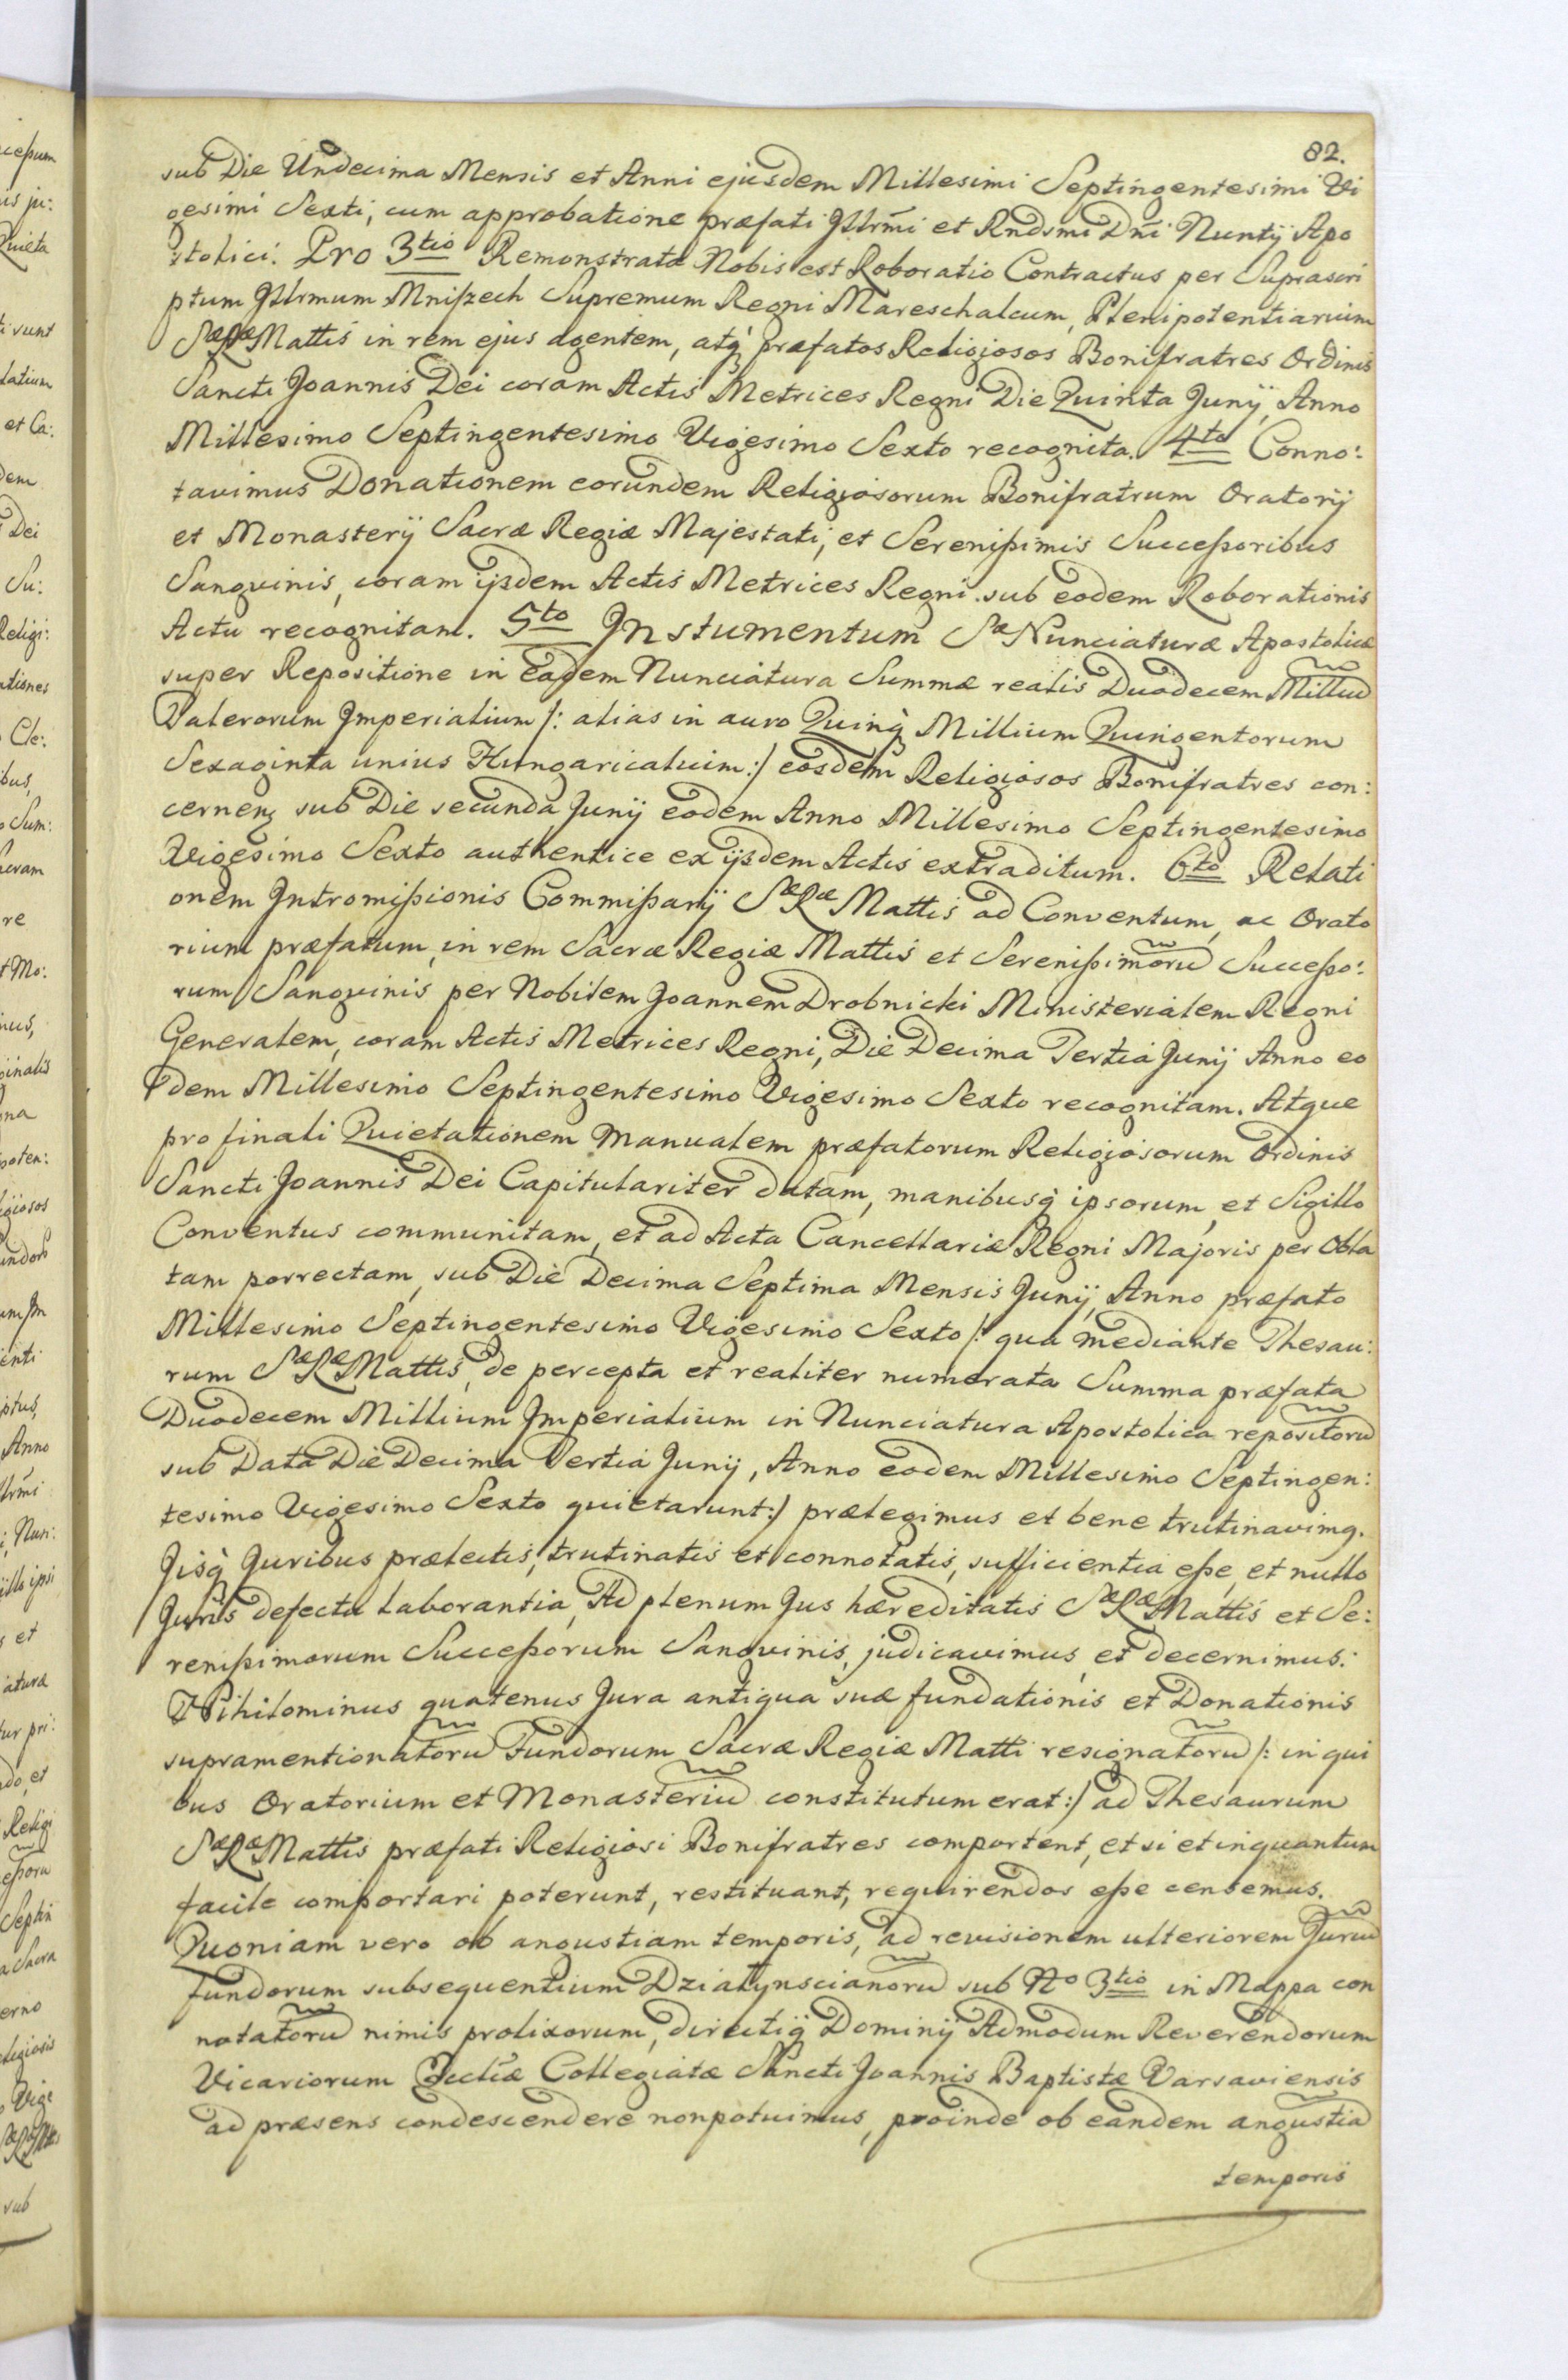 82.
sub Die Undecima Mensis et Anni ejusdem Millesimi Septingentesimi Vi
gesimi Sexti, cum approbatione præfati Jllrm̃i et Rndsmi Dñi Nuntij Apo
stolici. Pro 3tio Remonstrata Nobis est Roboratio Contractus per Suprascri
ptum Jllrmum Mniszech Supremum Regni Mareschalcum, Plenipotentiarium
SæRæMattis in rem ejus agentem, atq̀ præfatos Religiosos Bonifratres Ordinis
Sancti Joannis Dei coram Actis Metrices Regni Die Quinta Junij, Anno
Millesimo Septingentesimo Vigesimo Sexto recognita. 4to Conno:
tavimus Donationem eorundem Religiosorum Bonifratrum Oratorij
et Monasterij Sacræ Regiæ Majestati, et Serenißimis Succeßoribus
Sangvinis, coram ijsdem Actis Metrices Regni sub eodem Roborationis
Actu recognitam. 5to Jnstumentum Sæ Nunciaturæ Apostolicæ
super Repositione in eadem Nunciatura Summæ realis Duodecem Milliũ
Talerorum Jmperialium /: alias in auro Quinq̀ Millium Quingentorum
Sexaginta unius Hungaricaluim :/ eosdem Religiosos Bonifratres con:
cernenz sub Die secunda Junij eodem Anno Millesimo Septingentesimo
Vigesimo Sexto authentice ex ijsdem Actis extraditum. 6to Relati
onem Jntromißionis Commißarij SæRæ Mattis ad Conventum, ac Orato
rium præfatum, in rem Sacræ Regiæ Mattis et Serenißimorũ Succeßo:
rum Sangvinis per Nobilem Joannem Drobnicki Ministerialem Regni
Generalem, coram Actis Metrices Regni, Die Decima Tertia Junij Anno eo
dem Millesimo Septingentesimo Vigesimo Sexto recognitam. Atque
pro finali Quietationem Manualem præfatorum Religiosorum Ordinis
Sancti Joannis Dei Capitulariter datam, manibusq̀ ipsorum, et Sigillo
Conventus communitam, et ad Acta Cancellariæ Regni Majoris per Obla
tam porrectam, sub Die Decima Septima Mensis Junij, Anno præfato
Millesimo Septingentesimo Vigesimo Sexto /: qua mediante Thesau:
rum SæRæMattis, de percepta et realiter numerata Summa præfata
Duodecem Millium Jmperialium in Nunciatura Apostolica repositorũ
sub Data Die Decima Tertia Junij, Anno eodem Millesimo Septingen:
tesimo Vigesimo Sexto quietarunt :/ prælegimus et bene trutinavimq.
Jisq̀ Juribus prælectis, trutinatis et connotatis, sufficientia eße, et nullo
Juris defectu laborantia, Ad plenum Jus hæreditatis SæRæMattis et Se:
renißimorum Succeßorum Sangvinis, judicavimus, et decernimus.
Nihilominus quatenus Jura antiqua suæ fundationis et Donationis
supramentionatorũ Fundorum Sacræ Regiæ Matti resignatorũ /: in qui
bus Oratorium et Monasteriũ constitutum erat :/ ad Thesaurum
SæRæMattis præfati Religiosi Bonifratres comportent, et si et inquantum
facile comportari poterunt, restituant, requirendos eße censemus.
Quoniam vero ob angustiam temporis, ad revisionem ulteriorem Juriũ
fundorum subsequentium Dziatynscianorũ sub No 3tio in Mappa con
notatorũ nimis prolixorum, directiq̀ Dominij Admodum Reverendorum
Vicariorum Ecctiæ Collegiatæ Sancti Joannis Baptistæ Varsaviensis
ad præsens condescendere non potuimus, proinde ob eandem angustiã
temporis